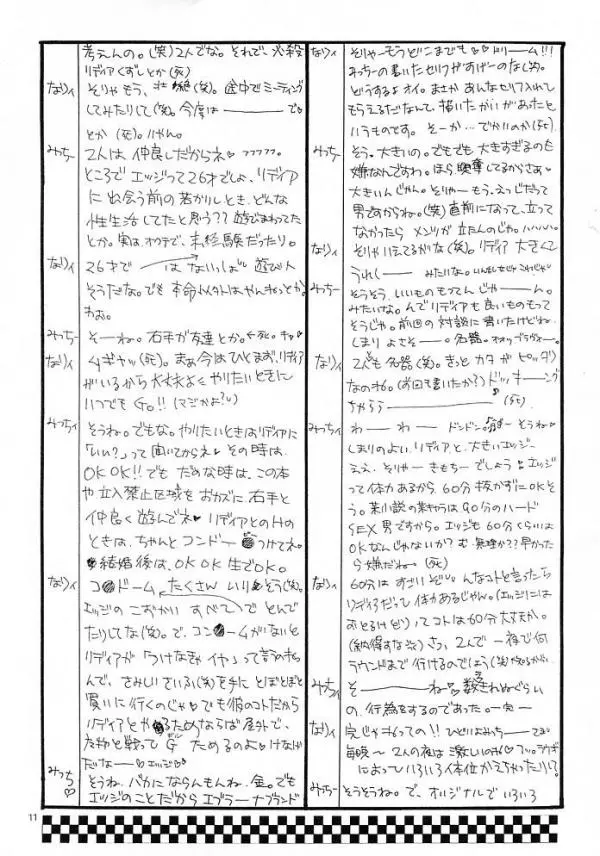 考えんの。(笑)2人でな。それで、必殺
リディアくずしとか(死)
なりィ そりゃもう、壮絶(笑)。途中でミーティング
してみたりして(笑)。今度は―――でっ
とか(死)。いやん。
みっちー 2人は仲良しだからネ♡フフフフフ。
ところでエッジって26才でしょ、リディア
に出会う前の若かりしとき、どんな
性生活してたと思う??遊びまわってた
とか。実は、オクテで、未経験だったり。
なりィ 26才で――はないっしょ 遊び人
そうだな。でも本命以外はやんねっとか。
わお。
みっちー そーね。右手が友達とか。←死。チャ
なりィ ムギャッ(死)。まぁ今はひとまず、リディア
がいるから大丈夫よ やりたいときに
いつでもGo!!(マジかよ?)
みっちィ そうね。でもな。やりたいときはリディアに
「いい?」って聞いてからネ♡その時は、
OKOK!!でもだめな時は、この本
や立入禁止区域をおカズに、右手と
仲良く遊んでネ♡リディアとのHの
ときは、ちゃんとコンドー●つけてネ。
●結婚後は、OKOK生でOK。
なりィ コ●ドームたくさんいりそう(笑)。
エッジのこづかいすべてでとんで
たりしてな(笑)。で、コン●ームがないと
リディアが「つけなきゃイヤ」って言うのね
んで、さみしいさいふ(笑)を手にとぼとぼと
買いに行くのじゃ♡でも彼のコトだから
リディアとや●るためならば屋外で、
怪物と戦ってGためるのよ♡けなげ
だな―♡エッジ♡
みっち♡ そうね、バカにならんもんね、金。でも
エッジのことだからエブラーナブランド
なりィ そりゃーもうどこまでも♡♡ドリーム!!!
みっちーの書いたセリフがすげーのな(笑)。
どうするよオイ。まさかあんなセリフ入れて
もらえるだなんて、描いたかいがあったと
いうものです。そーか…でかいのか(死)。
みっちー そう。大きいの。でもでも大きすぎるのも
嫌なんですわ。ほら興奮してるからさぁ
大きいんじゃん。そりゃーもう。えっじだって
男ですからね。(笑)直前になって、立って
なかったらメンツが立たんのじゃ。ハハハハ。
なりィ そりゃいえてるがな(笑)。リディア大きくて
うれしく―――みたいな。
みっちー そうそう、いいものもってんじゃ――ん。
みたいな。んでリディアも良いものもって
そうじゃ。前回の対談に書いたけどね、
しまりよさそ――。名器。
なりィ 2人とも名器(笑)。きっとカタがピッタリ
なのね。(前回も書いたか?)ドッキ――ング
ちゃうう――――――(死)
みっちィ わ――わ――ドンドン。そうね。
しまりのよい、リディアと、大きいエッジ―
ええ、そりゃーきもちーでしょう♡エッジ
って体力あるから、60分抜かずにOKそ
う。某小説の某キャラは90分のハード
SEX男ですから。エッジも60分くらいは
OKなんじゃないか?む、無理か??早かった
ら嫌だねー。(死)
なりィ 60分はすごいぞい。んなコトと言ったら
リディアだって体力あるじゃん。(エッジには
おとるけど)ってコトは60分大丈夫か。
(納得すな笑)さっ、2人で一夜で何
ラウンドまで行けるのでしょう(笑)
みっちィ そ―――――ね♡。殺されぬぐらい
の、行為をするのであった。―完―
なりィ 完じゃねっての!!ひどいよみっち――でも
毎晩〜2人の夜は激しいのね♡フッ。ラウンド
によっていろいろ体位がえちゃったりして。
みっちー そうそうね。で、オリジナルでいろいろ
11